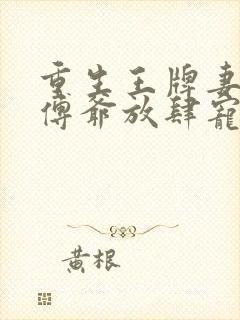 重生王牌妻
傅爺放肆寵
黃根